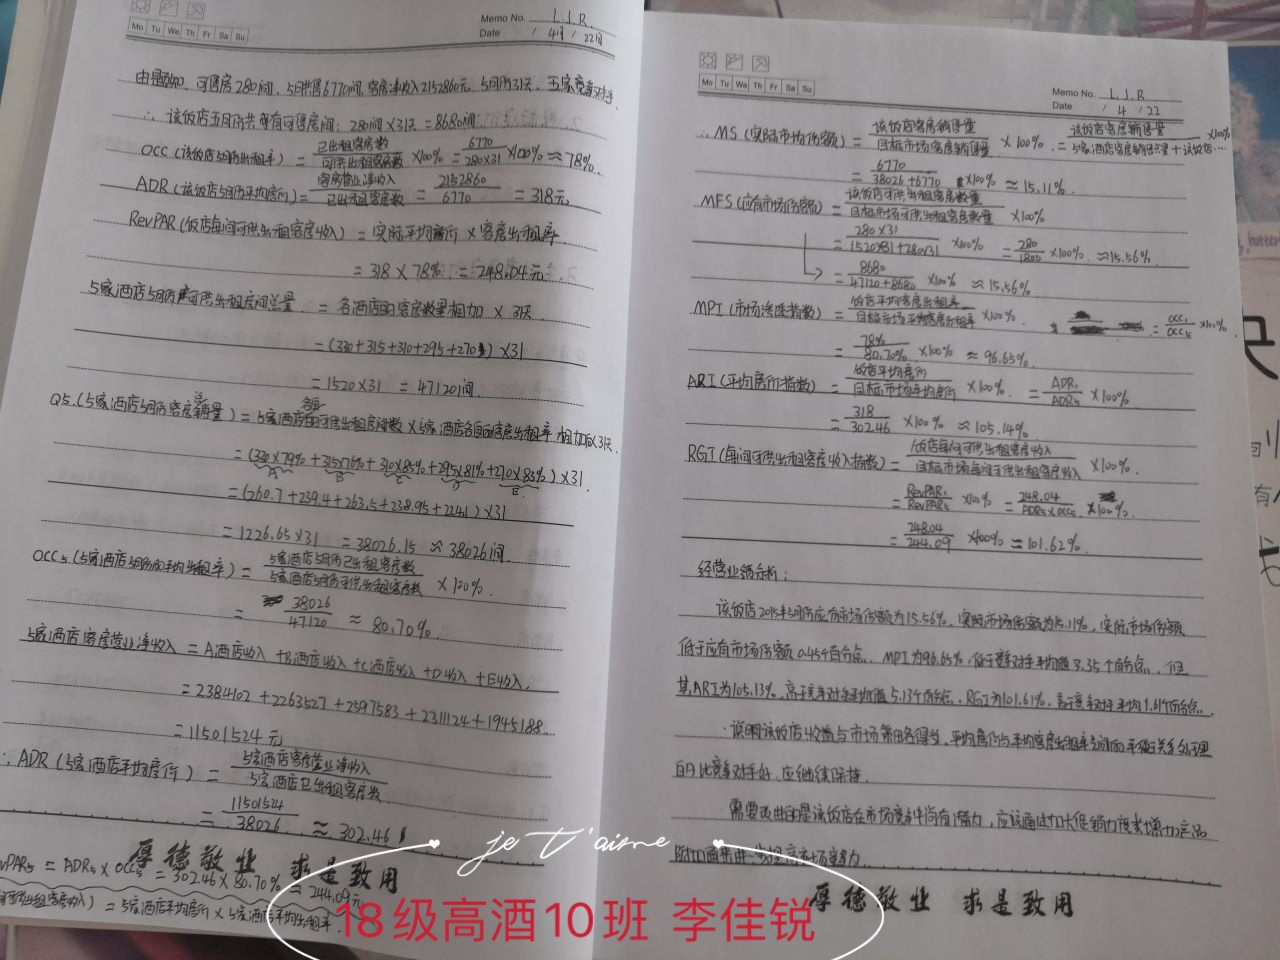 Memo No. L.J.R.
Mo Tu We Th Fr Sa Su
Date / 4月 / 22日
由题知，可售房280间，5月共售6770间，客房净收入2152860元，5月份31天，五家竞争对手.
∴该饭店五月份共有可售房间：280间×31天=8680间
OCC(该饭店5月份出租率)=已出租客房数/可供出租客房数×100%=6770/280×31×100%≈78%.
ADR(该饭店5月份平均房价)=客房营业净收入/已出租客房数=2152860/6770=318元
RevPAR(饭店每间可供出租客房收入)=实际平均房价×客房出租率
=318×78%=248.04元.
5家酒店5月份可供出租房间总量.=各酒店的客房数量相加×31天
=(330+315+310+295+270)×31
=1520×31=47120间
Q5.(5家酒店5月份客房总销量)=5家酒店各自的可供出租房间数×5家酒店各自的客房出租率 相加后×31天.
=(330×79%+315×76%+310×85%+295×81%+270×83%)×31
A B C D E
=(260.7+239.4+263.5+238.95+224.1)×31
=1226.65×31=38026.15≈38026间
OCC5(5家酒店5月份的平均出租率)=5家酒店5月份已出租客房数/5家酒店5月份可供出租客房数×100%.
=38026/47120≈80.70%.
5家酒店客房营业净收入=A酒店收入+B酒店收入+C酒店收入+D收入+E收入.
=2384102+2263527+2597583+2311124+1945188
=11501524元
∴ADR(5家酒店平均房价)=5家酒店客房营业净收入/5家酒店已出租客房数
=11501524/38026≈302.46
vPAR5=ADR5×OCC5=302.46×80.70%=244.09元
可供出租客房收入)=5家酒店平均房价×5家酒店平均出租率.
厚德敬业 求是致用
Memo No. L.J.R
Mo Tu We Th Fr Sa Su
Date / 4 / 22
∴MS(实际市场份额)=该饭店客房销售量/目标市场客房销售量×100%.=该饭店客房销售量/5家酒店客房销售总量+该饭店…×100%
=6770/38026+6770×100%≈15.11%.
MFS(应有市场份额)=该饭店可供出租客房数量/目标市场可供出租客房数量×100%
=280×31/1520×31+280×31×100%=280/1800×100%.≈15.56%.
=8680/47120+8680×100%≈15.56%
MPI(市场渗透指数)=饭店平均客房出租率/目标市场平均客房出租率×100%.=OCC1/OCC5×100%.
=78%/80.70%×100%≈96.65%.
ARI(平均房价指数)=饭店平均房价/目标市场平均房价×100%.=ADR1/ADR5×100%
=318/302.46×100%≈105.14%.
RGI(每间可供出租客房收入指数)=饭店每间可供出租客房收入/目标市场每间可供出租客房收入×100%.
=RevPAR1/RevPAR5×100%=248.04/ADR5×OCC5×100%.
=248.04/244.09×100%≈101.62%.
经营业绩分析：
该饭店2015年5月份应有市场份额为15.56%.实际市场份额为15.11%，实际市场份额
低于应有市场份额0.45个百分点.MPI为96.65%，低于竞争对手平均值3.35个百分点.，但
其ARI为105.13%，高于竞争对手平均值5.13个百分点，RGI为101.61%，高于竞争对手平均1.61个百分点.
·说明该饭店收益与市场策略得当，平均房价与平均客房出租率之间的平衡关系处理
的比竞争对手好，应继续保持.
·需要改进的是该饭店在市场竞争中尚有潜力，应该通过加大促销力度来增加产品
附加值来进一步提高市场竞争力
厚德敬业 求是致用
je t'aime
18级高酒10班 李佳锐